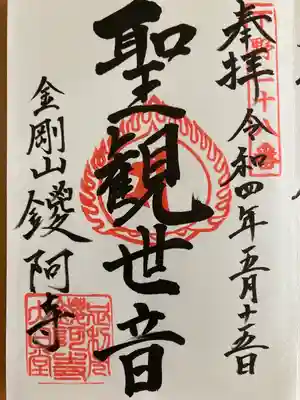 奉拝
令和四年五月十五日
聖観世音
金剛山鑁阿寺